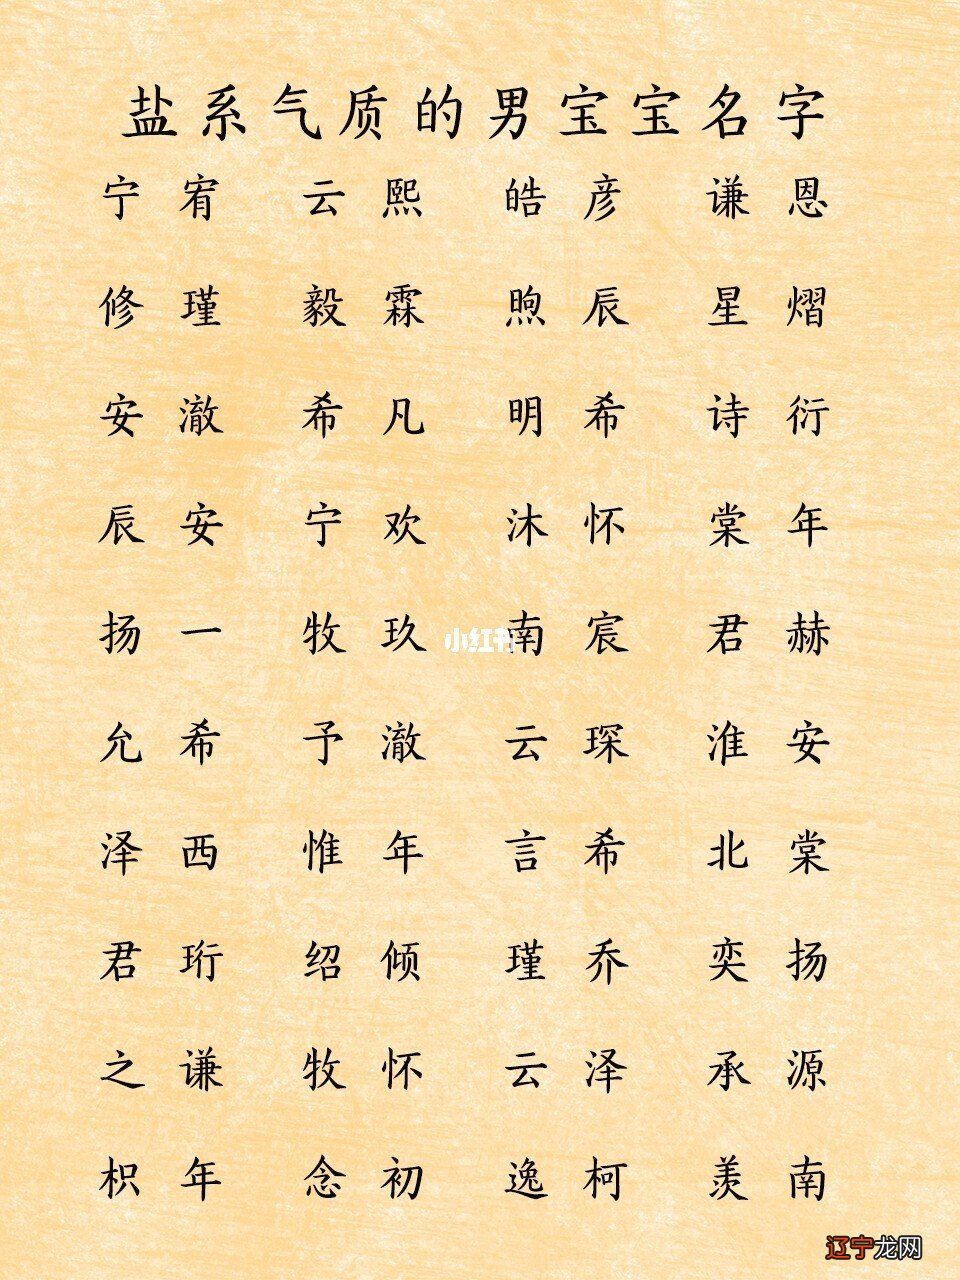 盐系气质的男宝宝名字
宁宥 云熙 皓彦 谦恩
修瑾 毅霖 煦辰 星熠
安澈 希凡 明希 诗衍
辰安 宁欢 沐怀 棠年
扬一 牧玖 南宸 君赫
小红书
允希 予澈 云琛 淮安
泽西 惟年 言希 北棠
君珩 绍倾 瑾乔 奕扬
之谦 牧怀 云泽 承源
枳年 念初 逸柯 羡南
辽宁龙网